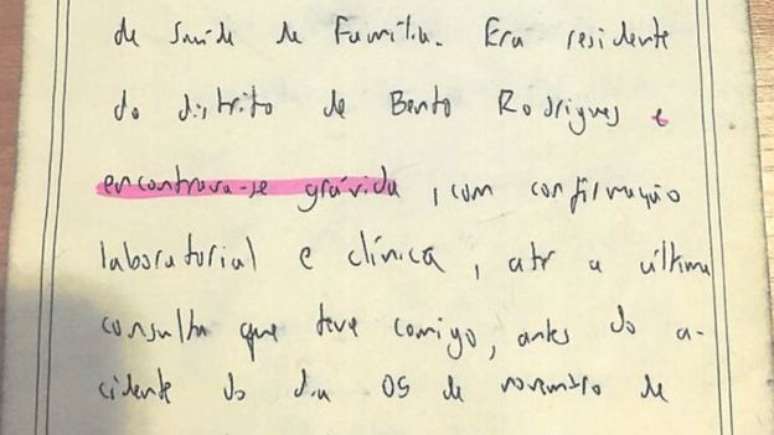 de Saúde de Família. Era residente
do distrito de Bento Rodrigues e
encontrava-se grávida, com confirmação
laboratorial e clínica, até a última
consulta que teve comigo, antes do a-
cidente do dia 05 de novembro de